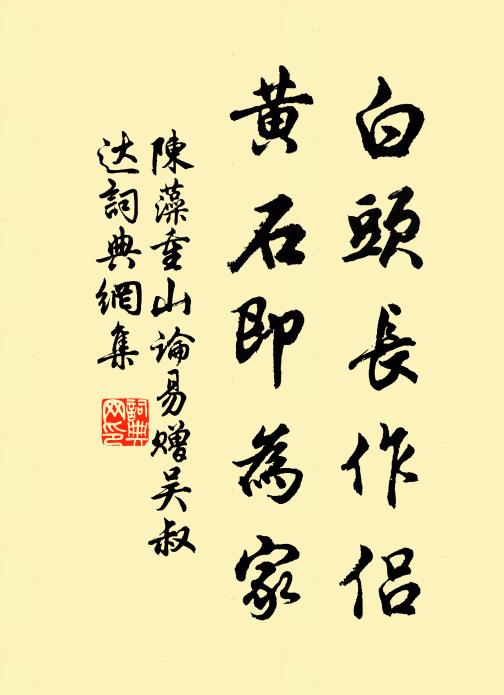 白頭長作侶
黄石即為家
陳藻重山論易贈吴叔
达詞典網集
詞典
网印